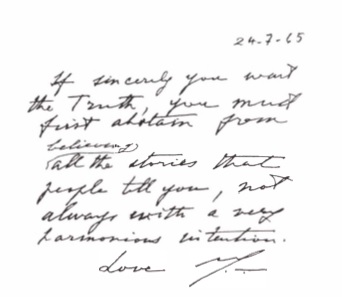 24-7-65
If sincerely you want
the Truth, you must
first abstain from
believing
all the stories that
people tell you, not
always with a very
harmonious intention.
Love